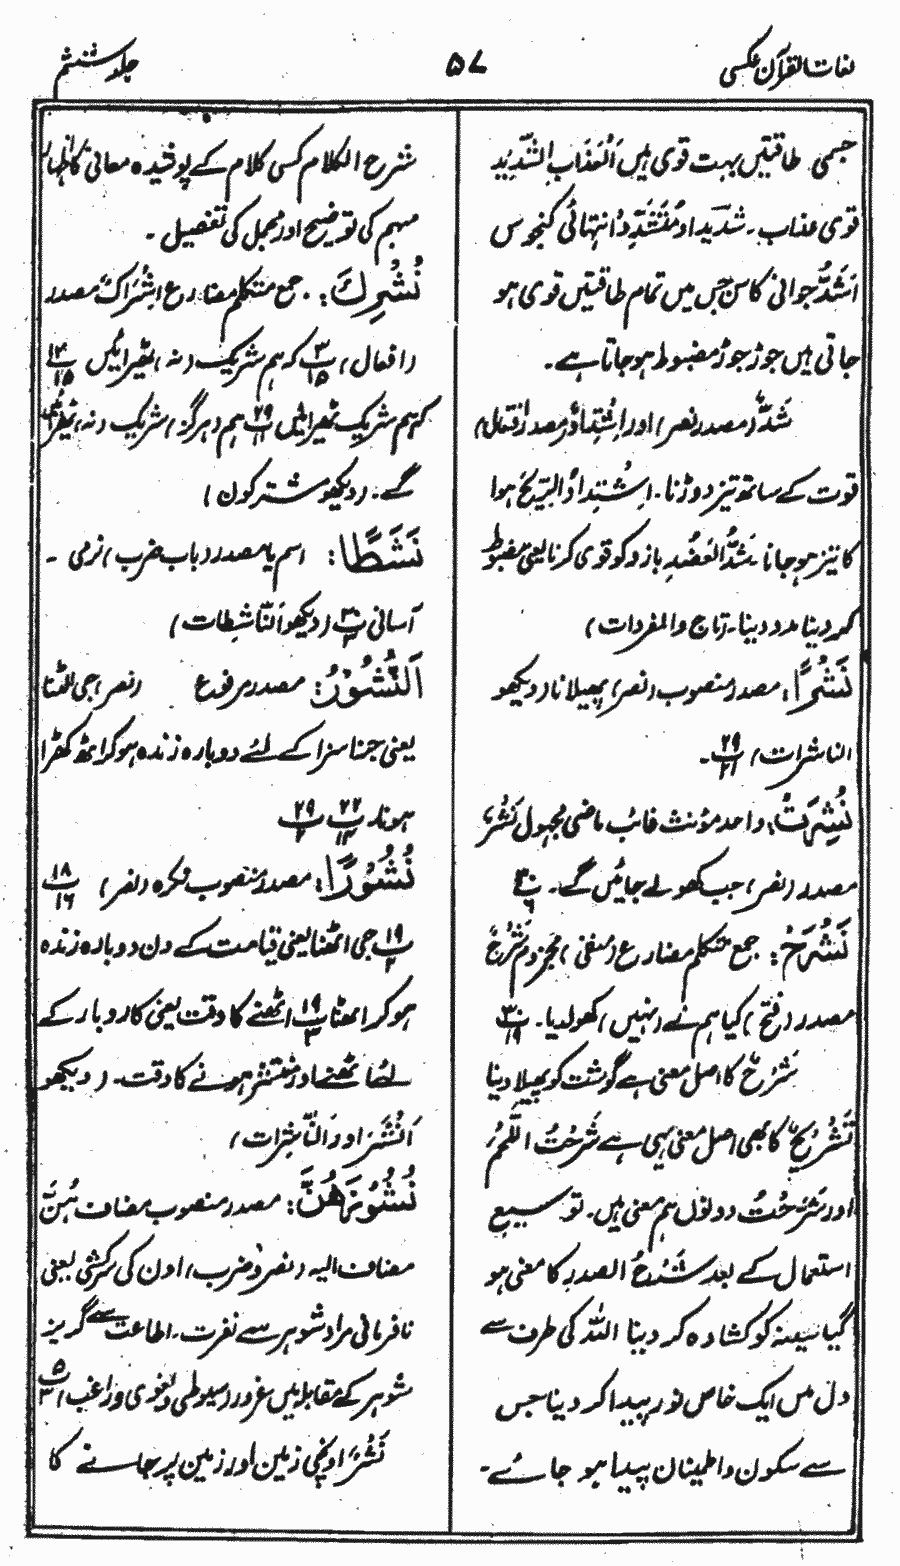 لغات القرآن عکسی
۵۷
جلد ششم
جسمی طاقتیں بہت قوی ہیں اَلْعَذَابِ الشَّدِیْد
قوی عذاب۔ شَدِید اور مُتَشَدِّدٌ انتہائی کنجوس
اَشَدُّ جوانی کا سن جس میں تمام طاقتیں قوی ہو
جاتی ہیں جوڑ جوڑ مضبوط ہو جاتا ہے۔
شَدٌّ (مصدر نصر) اور اِشْتِدَادٌ (مصدر افتعال)
قوت کے ساتھ تیز دوڑنا۔ اِشْتِدَادُ الرِّیْحِ ہوا
کا تیز ہو جانا۔ شَدُّ الْعَضُدِ بازو کو قوی کرنا یعنی مضبوط
کر دینا مدد دینا۔ (تاج والمفردات)
نَشْرًا: مصدر منصوب (نصر) پھیلانا (دیکھو
الناشرات) ۲۹/۲۱۔
نُشِرَتْ: واحد مؤنث غائب ماضی مجہول نَشْرٌ
مصدر (نصر) جب کھولے جائیں گے۔ ۳۰/۶
نَشْرَحْ: جمع متکلم مضارع (منفی) مجزوم شَرْحٌ
مصدر (فتح) کیا ہم نے (نہیں) کھولدیا۔ ۳۰/۱۹
شَرْحٌ کا اصل معنی ہے گوشت کو پھیلا دینا
تَشْرِیْحٌ کا بھی اصل معنی یہی ہے شَرَحْتُ اللَّحْمَ
اور شَرَّحْتُ دونوں ہم معنی ہیں۔ توسیع
استعمال کے بعد شَرْحُ الصدر کا معنی ہو
گیا سینہ کو کشادہ کر دینا اللہ کی طرف سے
دل میں ایک خاص نور پیدا کر دینا جس
سے سکون و اطمینان پیدا ہو جائے۔
شرح الکلام کسی کلام کے پوشیدہ معانی کا اظہار
مبہم کی توضیح اور مجمل کی تفصیل۔
نُشْرِكَ: جمع متکلم مضارع اِشْرَاكٌ مصدر
(افعال) ۳/۱۵ کہ ہم شریک (نہ) ٹھیرائیں ۱۳/۱۵
کہ ہم شریک ٹھیرائیں ۲۹/۱۱ ہم (ہرگز) شریک (نہ) ٹھیرائیں
گے۔ (دیکھو مشترکون)
نَشْطًا: اسم یا مصدر (باب ضرب) نرمی۔
آسانی ۳۰/۳ (دیکھو اَلنَّاشِطات)
اَلنُّشُوْرُ: مصدر مرفوع (نصر) جی اٹھنا
یعنی جزا سزا کے لئے دوبارہ زندہ ہو کر اٹھ کھڑا
ہونا۔ ۲۲/۱۳ ۲۹/۲
نُشُوْرًا: مصدر منصوب نکرہ (نصر) ۱۸/۱۶
۱۹/۲ جی اٹھنا یعنی قیامت کے دن دوبارہ زندہ
ہو کر اٹھنا ۱۹/۳ اٹھنے کا وقت یعنی کاروبار کے
لئے اٹھنے اور منتشر ہونے کا وقت۔ (دیکھو
اَنْشَرَ اور اَلنَّاشِرَات)
نُشُوْزَهُنَّ: مصدر منصوب مضاف هُنَّ
مضاف الیہ (نصر و ضرب) اون کی سرکشی یعنی
نافرمانی مراد شوہر سے نفرت۔ اطاعت سے گریز
شوہر کے مقابلہ میں غرور (سیوطی و بغوی و راغب) ۵/۳
نَشْزٌ اونچی زمین اور زمین پر جانے کا